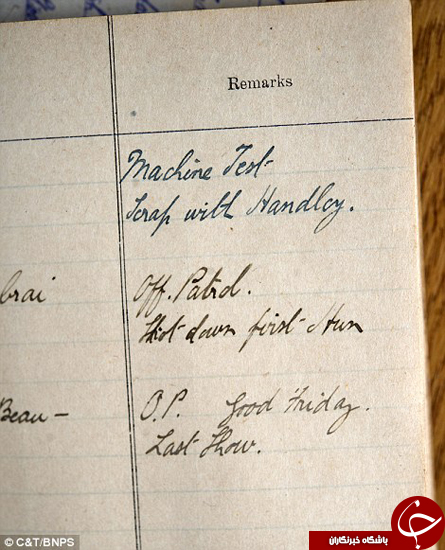 Remarks
Machine Test
Scrap with Handley.
brai
Off. Patrol.
Shot down first Hun
Beau –
O.P. Good Friday.
Last Show.
© C&T/BNPS
باشگاه خبرنگاران